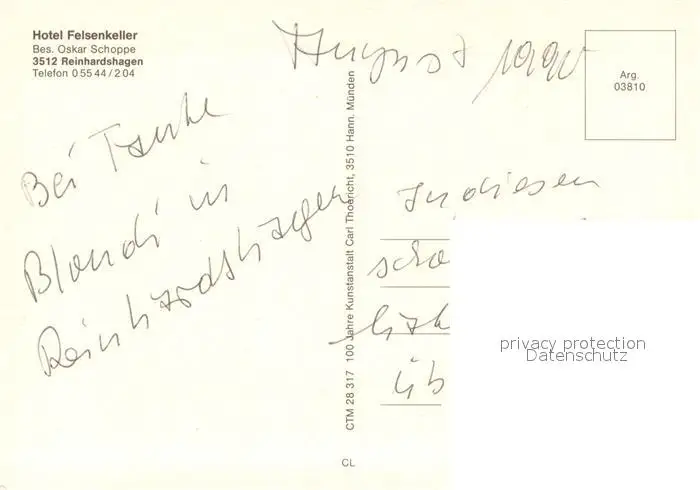 Hotel Felsenkeller
Bes. Oskar Schoppe
3512 Reinhardshagen
Telefon 0 55 44 / 2 04
August 1990
Arg.
03810
Bei Tante
Blondi in
Reinhardshagen
CTM 28 317 100 Jahre Kunstanstalt Carl Thoericht, 3510 Hann. Münden
In diesen
üb
privacy protection
Datenschutz
CL